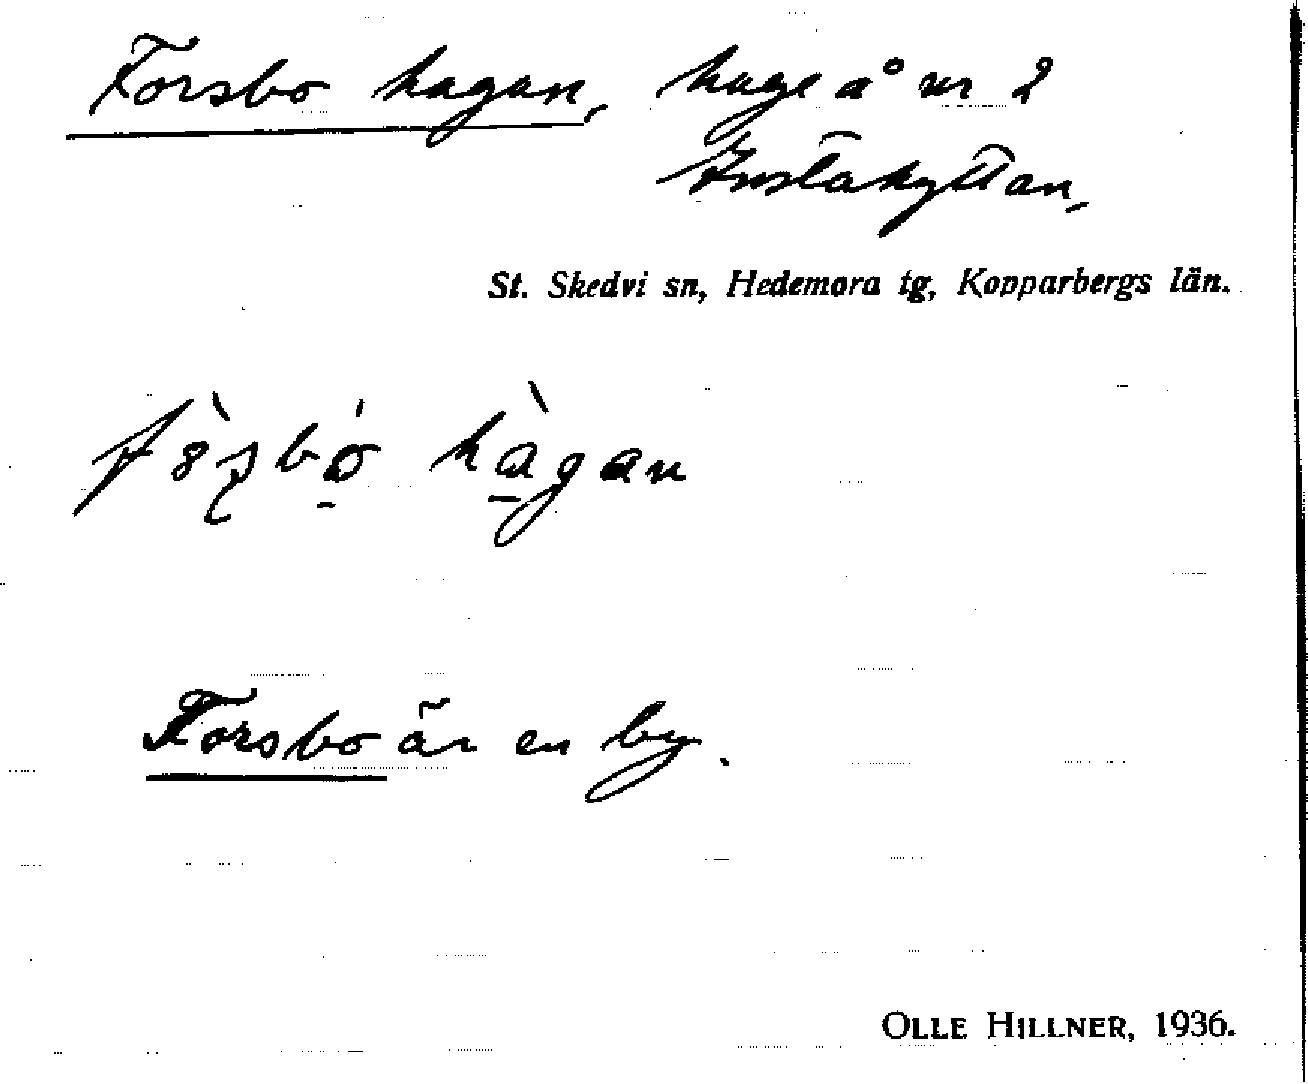 Forsbo hagan, hage å nr 2
Gustahyttan,
St. Skedvi sn, Hedemora tg, Kopparbergs län.
hàgan
Forsbo är en by.
OLLE HILLNER, 1936.